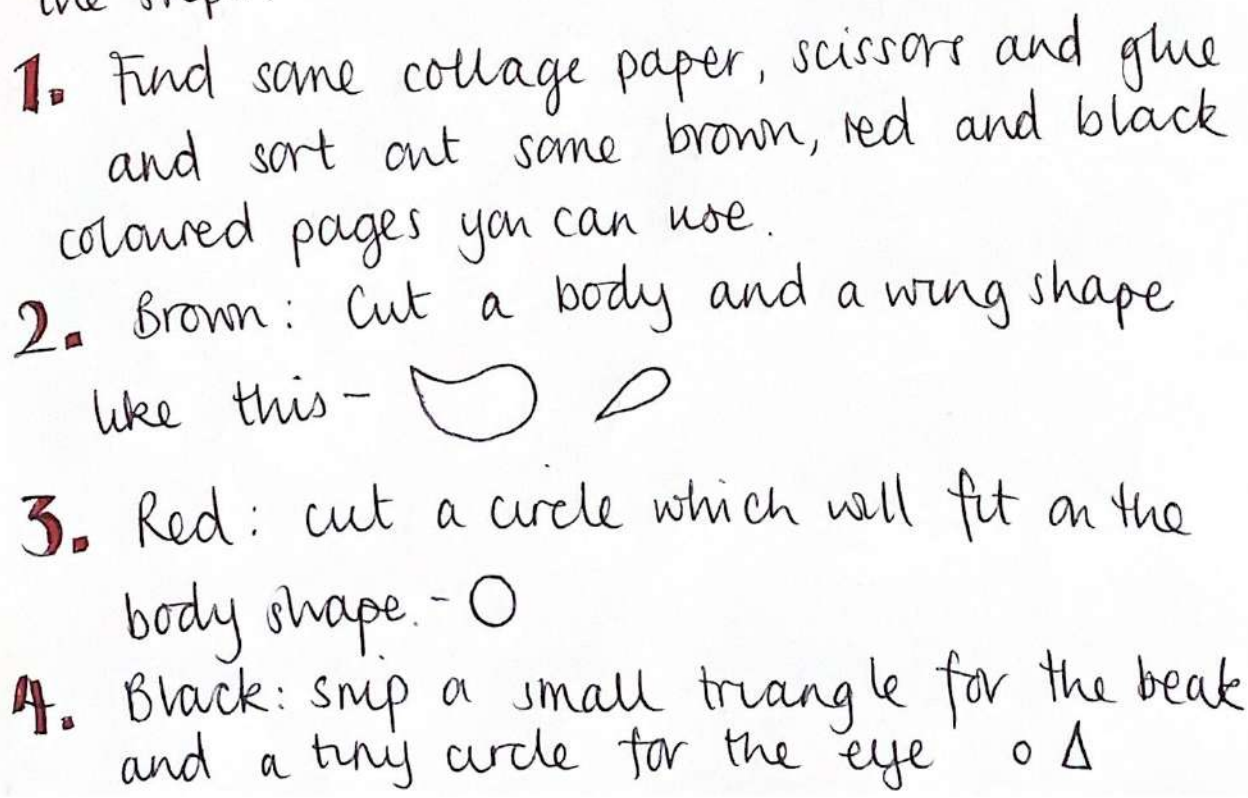 1. Find some collage paper, scissors and glue
and sort out some brown, red and black
coloured pages you can use.
2. Brown: Cut a body and a wing shape
like this -
3. Red: cut a circle which will fit on the
body shape. -
4. Black: snip a small triangle for the beak
and a tiny circle for the eye